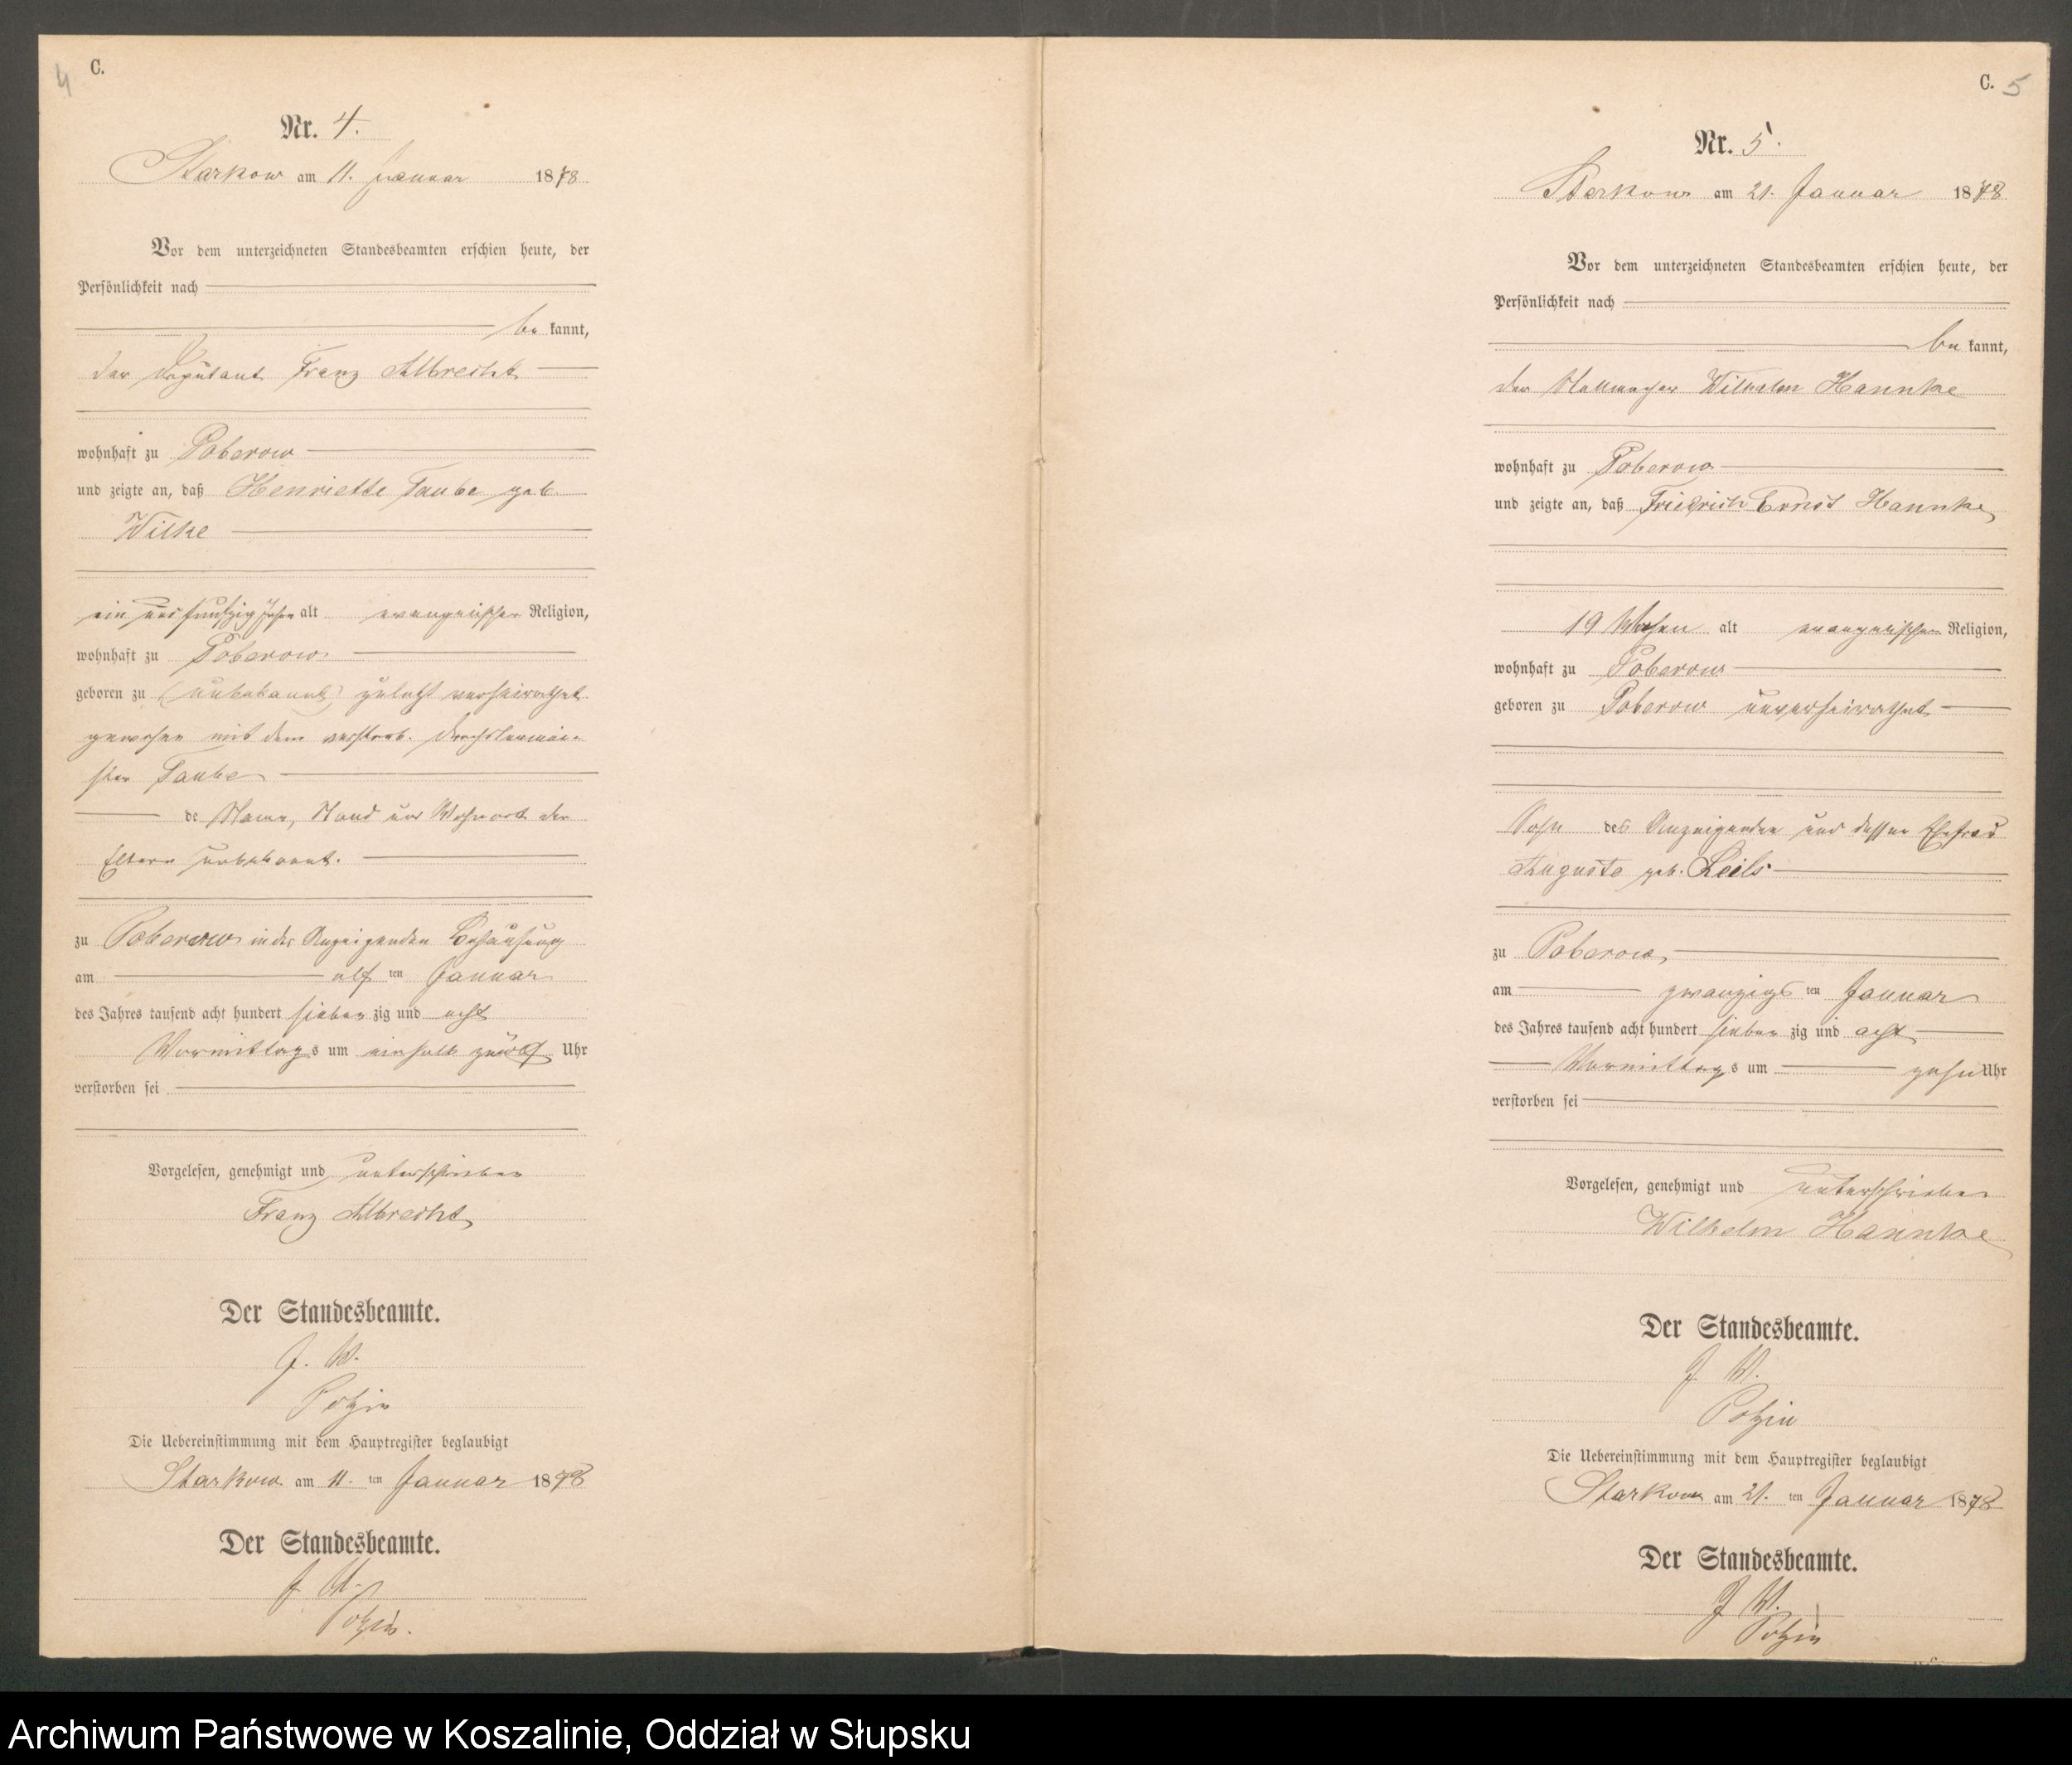 4 C.
Nr. 4.
Starkow am 11. Januar 1878
Vor dem unterzeichneten Standesbeamten erschien heute, der
Persönlichkeit nach
be kannt,
der Deputant Franz Albrecht
wohnhaft zu Poberow
und zeigte an, daß Henriette Taube geb.
Wilke
ein und funfzig Jahre alt evangelischer Religion,
wohnhaft zu Poberow
geboren zu (unbekannt) zuletzt verheirathet
gewesen mit dem verstorb.
Taube
de Name, Stand und Wohnort der
Eltern unbekannt.
zu Poberow in des Anzeigenden Behausung
am elf ten Januar
des Jahres tausend acht hundert sieben zig und acht
Vormittag s um einhalb zwölf Uhr
verstorben sei
Vorgelesen, genehmigt und unterschrieben
Franz Albrecht
Der Standesbeamte.
J. V.
Potzin
Die Uebereinstimmung mit dem Hauptregister beglaubigt
Starkow am 11. ten Januar 1878
Der Standesbeamte.
J. V.
Potzin.
C. 5
Nr. 5.
Starkow am 21. Januar 1878
Vor dem unterzeichneten Standesbeamten erschien heute, der
Persönlichkeit nach
be kannt,
der Wilhelm Hannke
wohnhaft zu Poberow
und zeigte an, daß Friedrich Ernst Hannke
19 Wochen alt evangelischer Religion,
wohnhaft zu Poberow
geboren zu Poberow unverheirathet
Sohn des Anzeigenden und dessen Ehefrau
Auguste geb. Leils
zu Poberow
am zwanzigs ten Januar
des Jahres tausend acht hundert sieben zig und acht
Vormittag s um zehn Uhr
verstorben sei
Vorgelesen, genehmigt und unterschrieben
Wilhelm Hannke
Der Standesbeamte.
J. V.
Potzin
Die Uebereinstimmung mit dem Hauptregister beglaubigt
Starkow am 21. ten Januar 1878
Der Standesbeamte.
J. V.
Potzin
Archiwum Państwowe w Koszalinie, Oddział w Słupsku